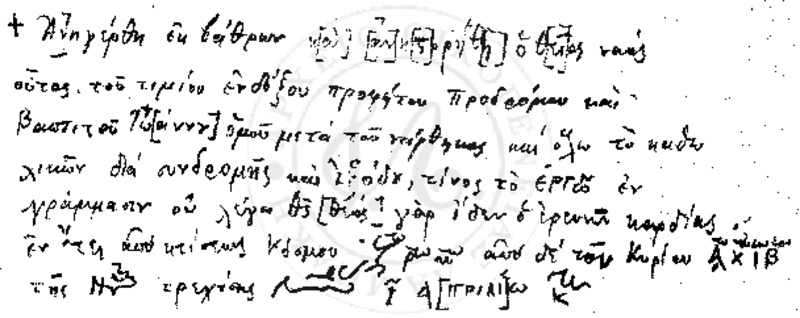 + Ἀνηγέρθη ἐκ βάθρων κ[αὶ] [ἀν]ι[στ]ορήθ[η] ὁ θεῖος ναὸς
οὗτος τοῦ τιμίου ἐνδόξου προφήτου Προδρόμου καὶ
βαπτιστοῦ Ἰω[άννου] ὁμοῦ μετὰ τοῦ νάρθηκος καὶ ὅλω τὸ καθω
λικῶν διὰ συνδρομῆς καὶ ἐξόδου, τίνος τὸ ἔργω ἐν
γράμμασιν οὐ λέγω θς [θεὸς] γὰρ ἴδεν ὁ ἐρευνῶν καρδίας
ἐν ἔτει ἀπὸ κτίσεως κόσμου ἀπὸ δὲ τοῦ Κυρίου ΑΧΙΒ
τῆς τρεχούσης Α[ΠΡΙΛΙ]ω